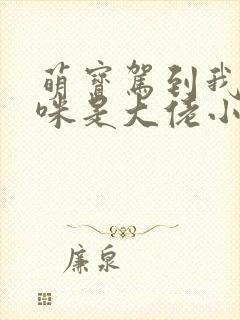 萌寶駕到我
咪是大佬小
廉泉